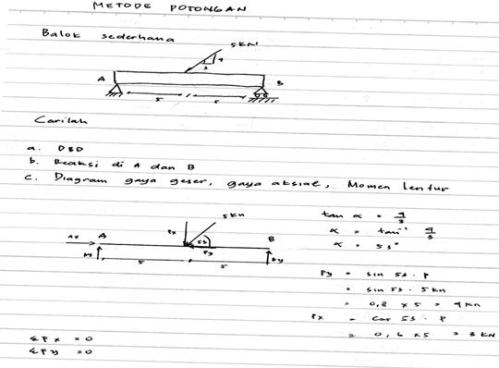 METODE POTONGAN
Balok sederhana
5 kN
4
3
A
B
5
5
Carilah
a. DBD
b. Reaksi di A dan B
c. Diagram gaya geser, gaya aksial, Momen lentur
5 kN
Px
53
Py
Ax
A
B
Ay
By
5
5
tan α = 4/3
α = tan⁻¹ 4/3
α = 53°
Py = sin 53 . P
= sin 53 . 5 kN
= 0,8 x 5 = 4 kN
Px = cos 53 . P
= 0,6 x 5 = 3 kN
ΣPx = 0
ΣPy = 0